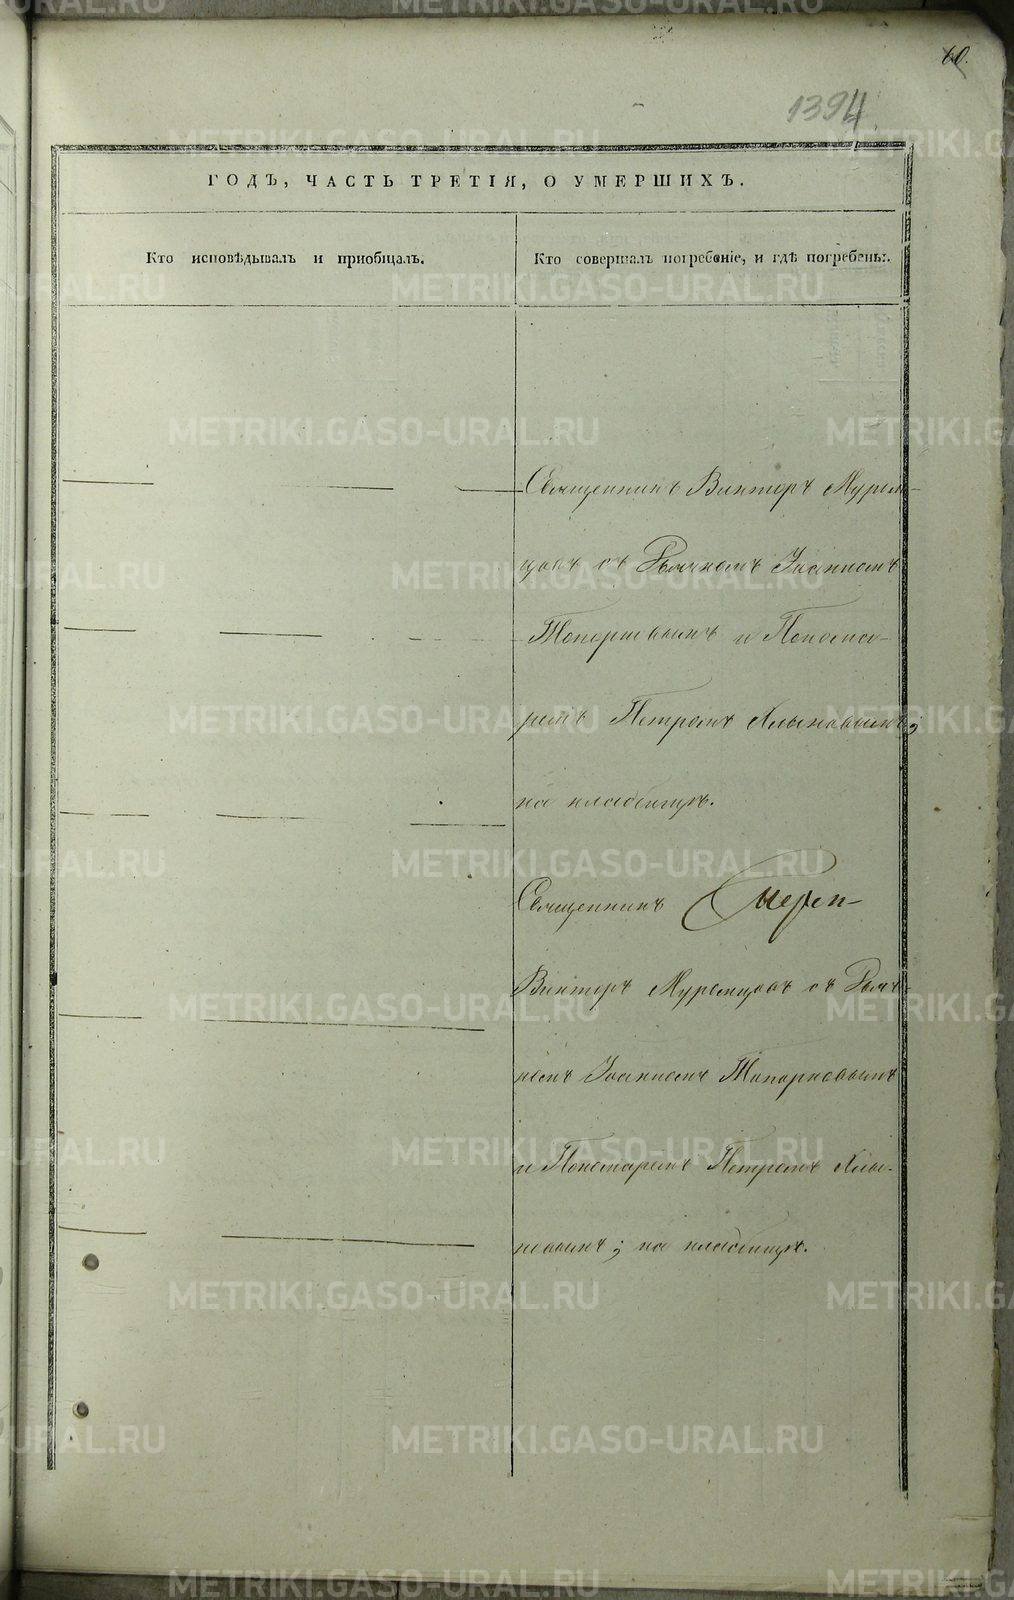 60.
1394
ГОДЪ, ЧАСТЬ ТРЕТІЯ, О УМЕРШИХЪ.
Кто исповѣдывалъ и пріобщалъ.
Кто совершалъ погребеніе, и гдѣ погребены.
Священникъ Викторъ Муром-
цовъ съ Дьячкомъ Іоанномъ
Топорковымъ и Понома-
ремъ Петромъ Хлыновымъ;
на кладбищѣ.
Священникъ
Викторъ Муромцовъ съ Дьяч-
комъ Іоанномъ Топорковымъ
и Пономаремъ Петромъ Хлы-
новымъ; на кладбищѣ.
METRIKI.GASO-URAL.RU